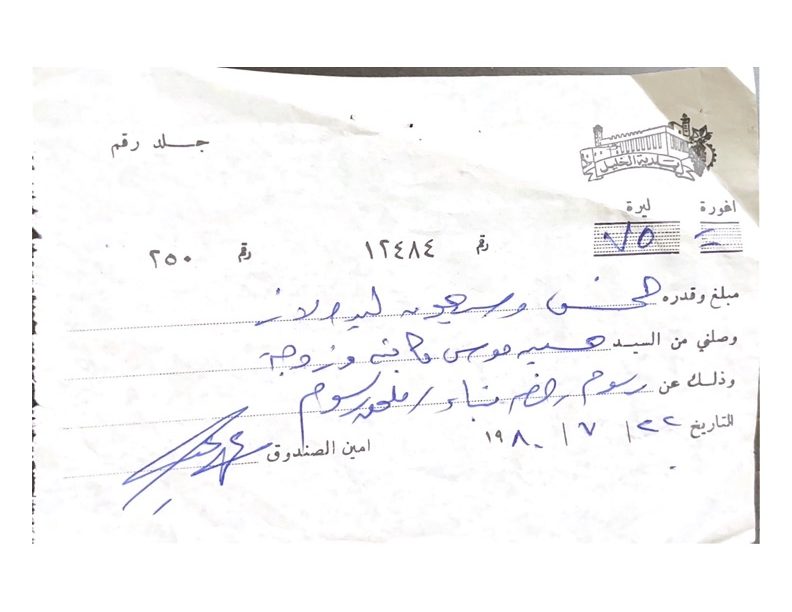 بلدية الخليل
جلد رقم
اغورة ليرة
= ٧٥
رقم ١٢٤٨٤ رقم ٢٥٠
مبلغ وقدره خمس وسبعون ليره لا غير
وصلني من السيد موسى وزوجة
وذلك عن رسوم رخصه بناء / ملحق رسوم
التاريخ ٢٢ / ٧ / ١٩٨٠
امين الصندوق